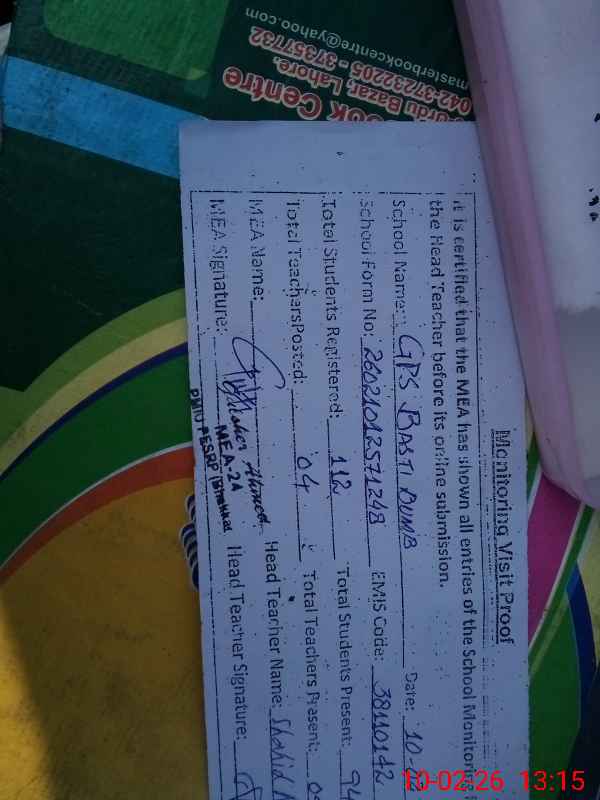 Monitoring Visit Proof
It is certified that the MEA has shown all entries of the School Monitoring
the Head Teacher before its online submission.
School Name: GPS BASTI DUMB Date: 10-02
School Form No: 26021012571248 EMIS Code: 38110142
Total Students Registered: 112 Total Students Present: 94
Total Teachers Posted: 04 Total Teachers Present: 0
MEA Name: Ahmed Head Teacher Name: Shahid
MEA Signature: Head Teacher Signature:
MEA-24
PMIU PESRP
Book Centre
Urdu Bazar, Lahore.
042-37232205 - 37357732
masterbookcentre@yahoo.com
10-02-26 13:15